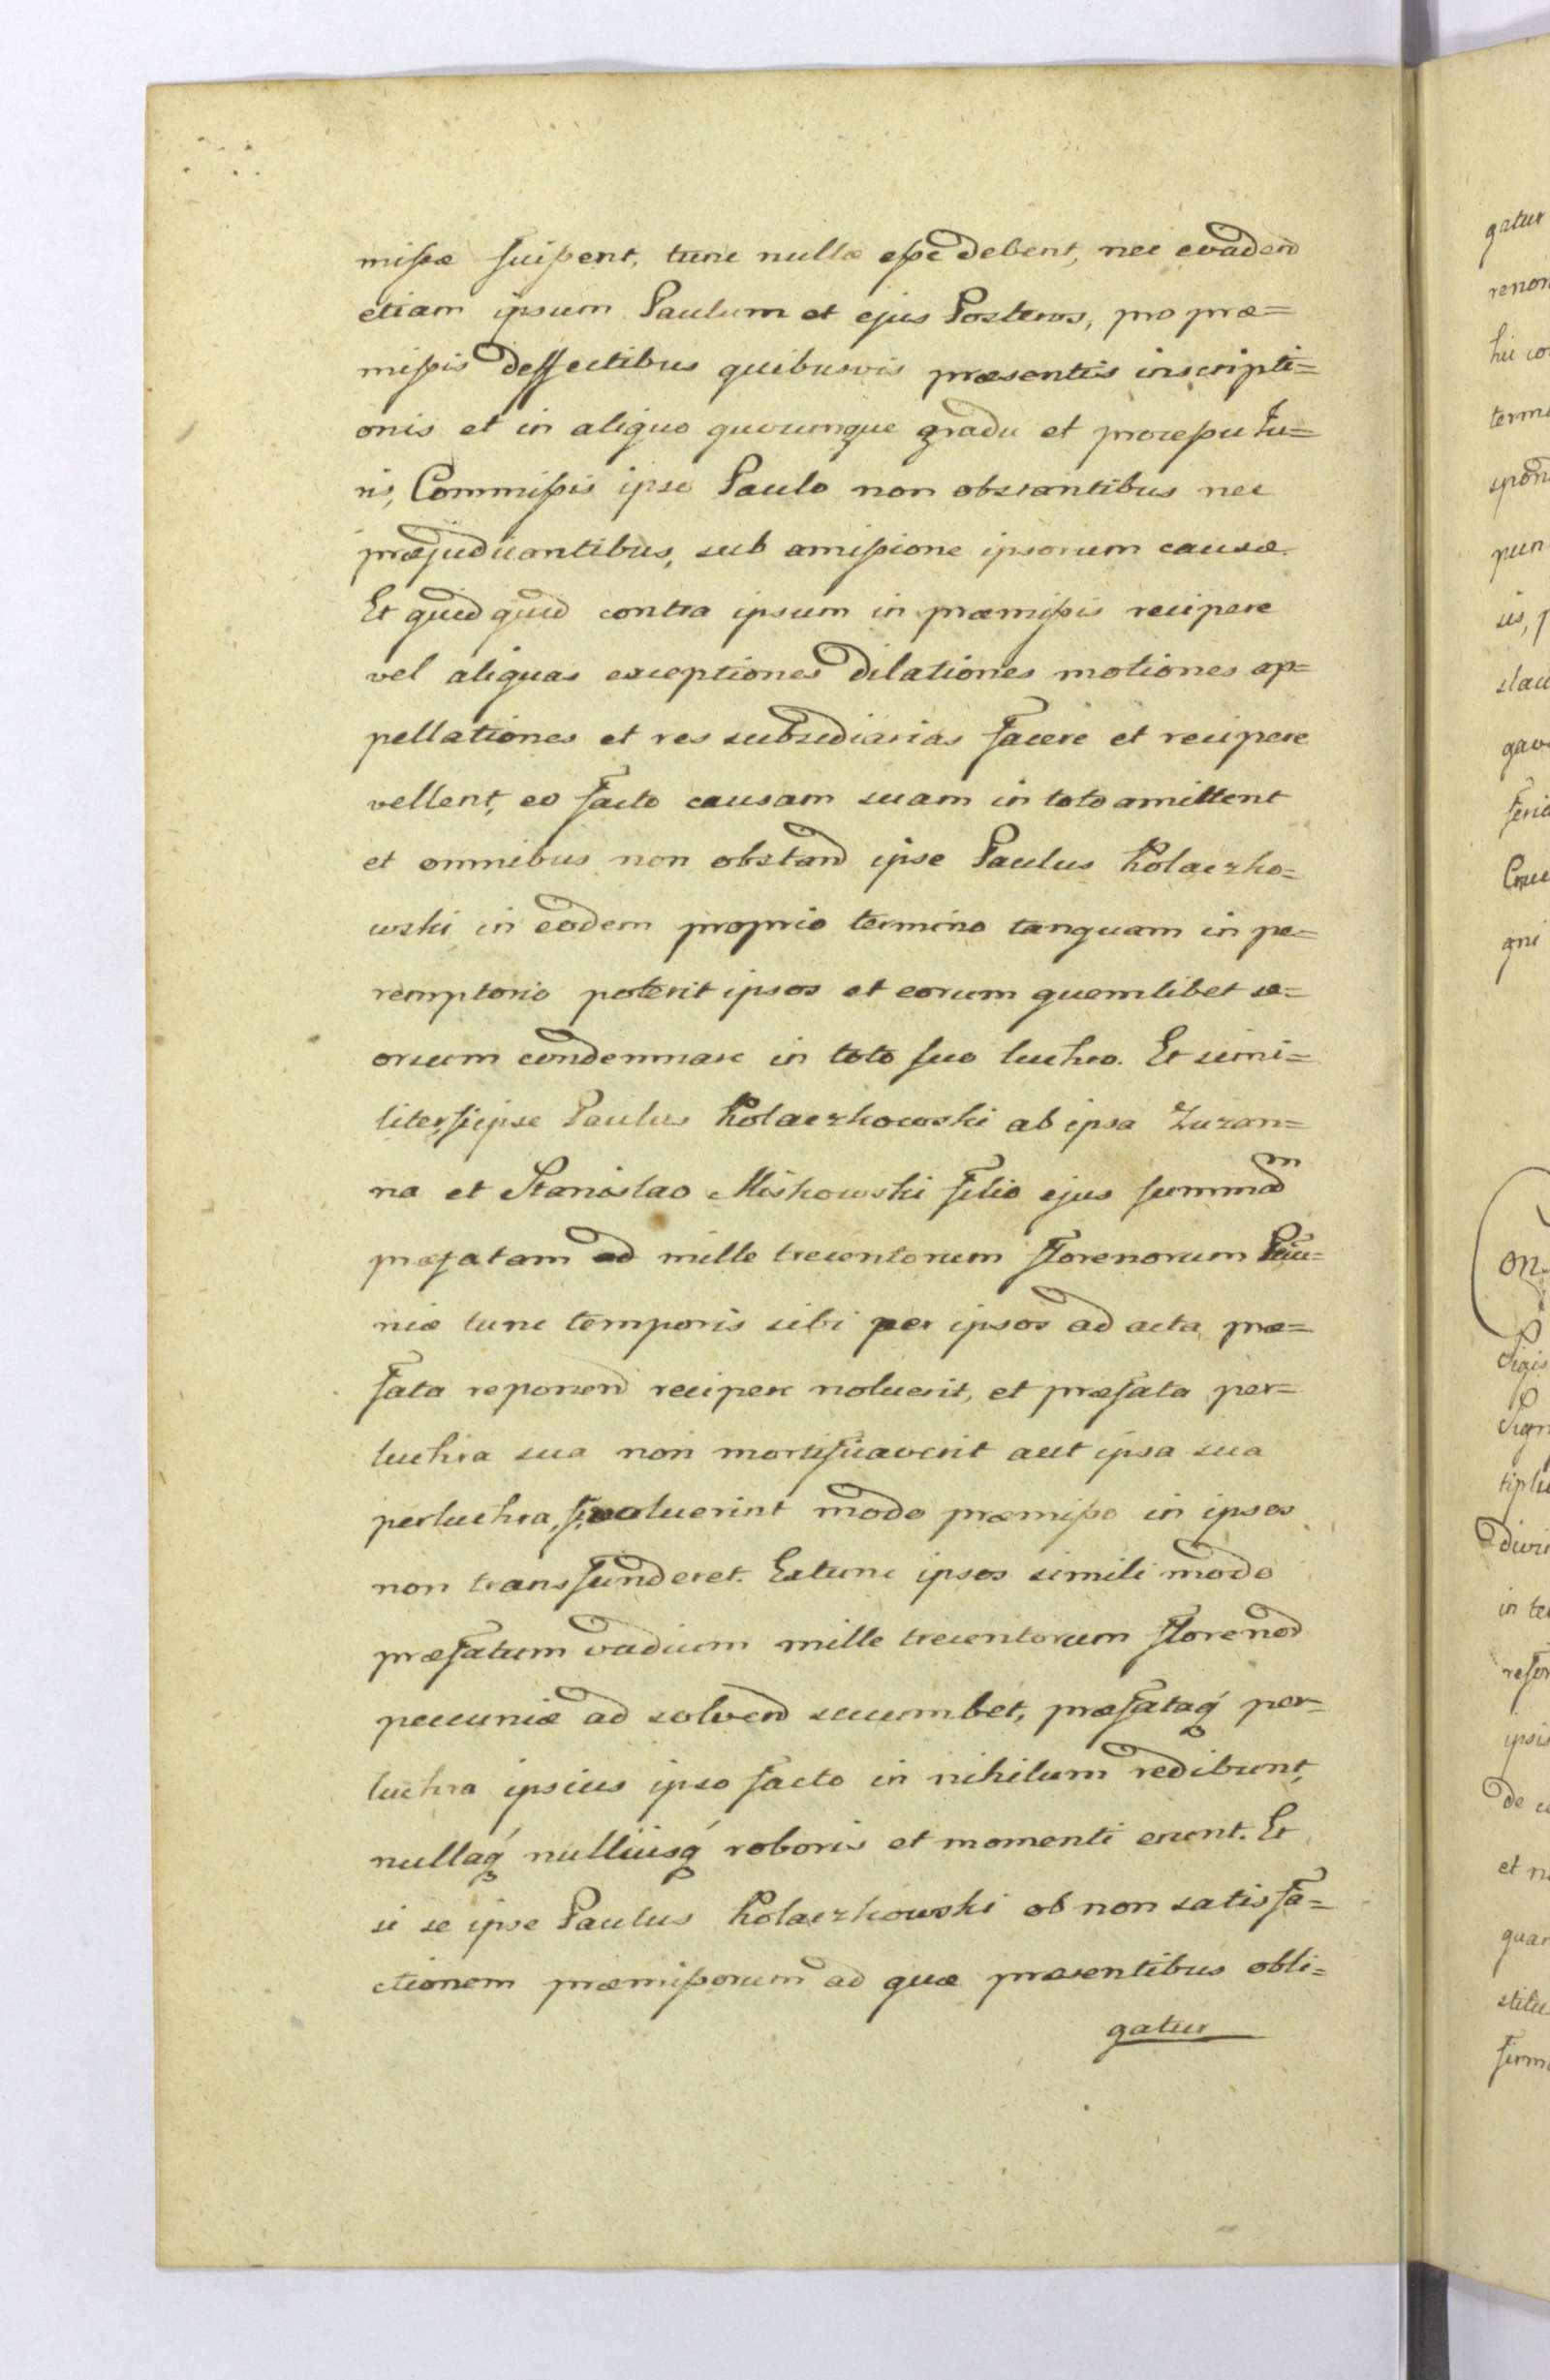 missæ fuissent, tunc nullæ esse debent, nec evadend
etiam ipsum Paulum et ejus Posteros, pro præ=
missis deffectibus quibusvis præsentis inscripti=
onis et in aliquo quocunque gradu et processu Ju=
ris, Commissis ipso Paulo non obstantibus nec
præjudicantibus, sub amissione ipsorum causæ.
Et quid quid contra ipsum in præmissis recipere
vel aliquas exceptiones dilationes motiones ap=
pellationes et res subsidiarias facere et recipere
vellent, eo facto causam suam in toto amittent
et omnibus non obstand ipse Paulus Kołaczko=
wski in eodem proprio termino tanquam in pe=
remptorio poterit ipsos et eorum quemlibet se=
orsum condemnare in toto suo luchro. Et simi=
liter, si ipse Paulus Kołaczkowski ab ipsa Zuzan=
na et Stanislao Miskowski filio ejus summam
præfatam ad mille trecentorum florenorum Pecu=
niæ tunc temporis sibi per ipsos ad acta præ=
fata reponend recipere noluerit, et præfata per=
luchra sua non mortificaverit aut ipsa sua
perluchra, si voluerint modo præmisso in ipsos
non transfunderet. Extunc ipsos simili modo
præfatum vadium mille trecentorum florenod
pecuniæ ad solvend sucumbet, præfataq́ per=
luchra ipsius ipso facto in nihilum redibunt,
nullaq́ nulliusq́ roboris et momenti erunt. Et
si se ipse Paulus Kołaczkowski ob non satisfa=
ctionem præmissorum ad quæ præsentibus obli=
gatur
gatur
term
pun
gav
Sigis
Sign
in te
ipsis
de
et n
quar
stitu
firm